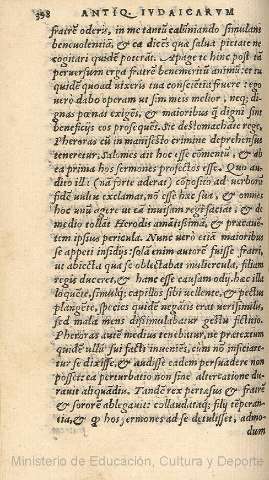 398 ANTIQ. IVDAICARVM
fratrē oderis, in me tantū calūniando simulans
beneuolentiā, & ea dicēs quæ salua pietate ne
cogitari quidē poterāt. Apage te hinc post tā
peruersum erga fratrē benemeritū animū: et tu
quidē quoad vixeris tua cōscientia fruere: ego
uerò dabo operam ut sim meis melior, neq; di-
gnas pœnas exigēs, & maioribus q̃ digni sint
beneficijs eos prosequēs. Sic destomachate rege,
Pheroras cū in manifesto crimine deprehensus
teneretur, Salomes ait hoc esse cōmentū, & ab
ea prima hos sermones profectos esse. Quo au-
dito illa (nā forte aderat) cōposito ad verborū
fidē uultu exclamat, nō esse hæc sua, & omnes
hoc unū agere ut ea inuisam regi faciāt, & de
medio tollāt Herodis amātissimā, & præcauē-
tem ipsius pericula. Nunc verò etiā maioribus
se appeti insidijs: solā enim autorē fuisse fratri,
ut abiecta qua se oblectabat muliercula, filiam
regis duceret, & hanc esse causam odij. hæc illa
loquēte, simulq; capillos sibi uellente, & pectus
plangēte, species quidē negātis erat verisimilis,
sed mala mens dissimulabatur gestu fictitio.
Pheroras autē medius tenebatur, ne prætextum
quidē ullū sui facti inueniēs, cùm nō inficiare-
tur se dixisse, & audisse eadem persuadere non
posset: ea perturbatio non sine altercatione du-
rauit aliquādiu. Tandē rex pertæsus & fratrē
& sororē ablegauit: collaudataq; filij tēperan-
tia, & q̃ hos sermones ad se detulisset, admo-
dum
Ministerio de Educación, Cultura y Deporte